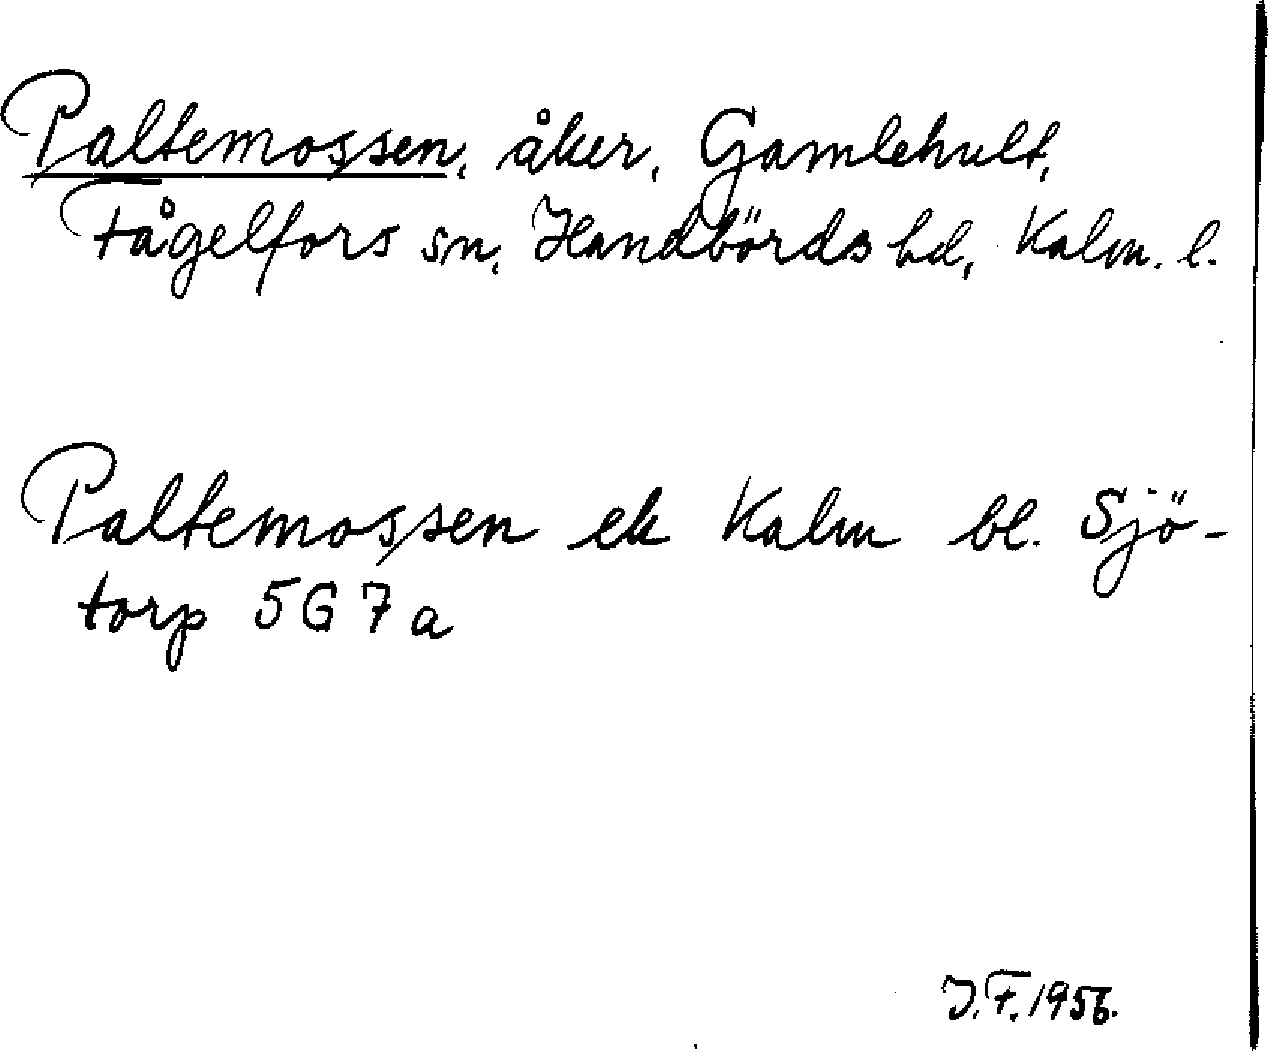 Paltemossen, åker, Gamlehult,
Fågelfors sn, Handbörds hd, Kalm. l.
Paltemossen ek Kalm bl. Sjö-
torp 5G7a
J.F. 1956.